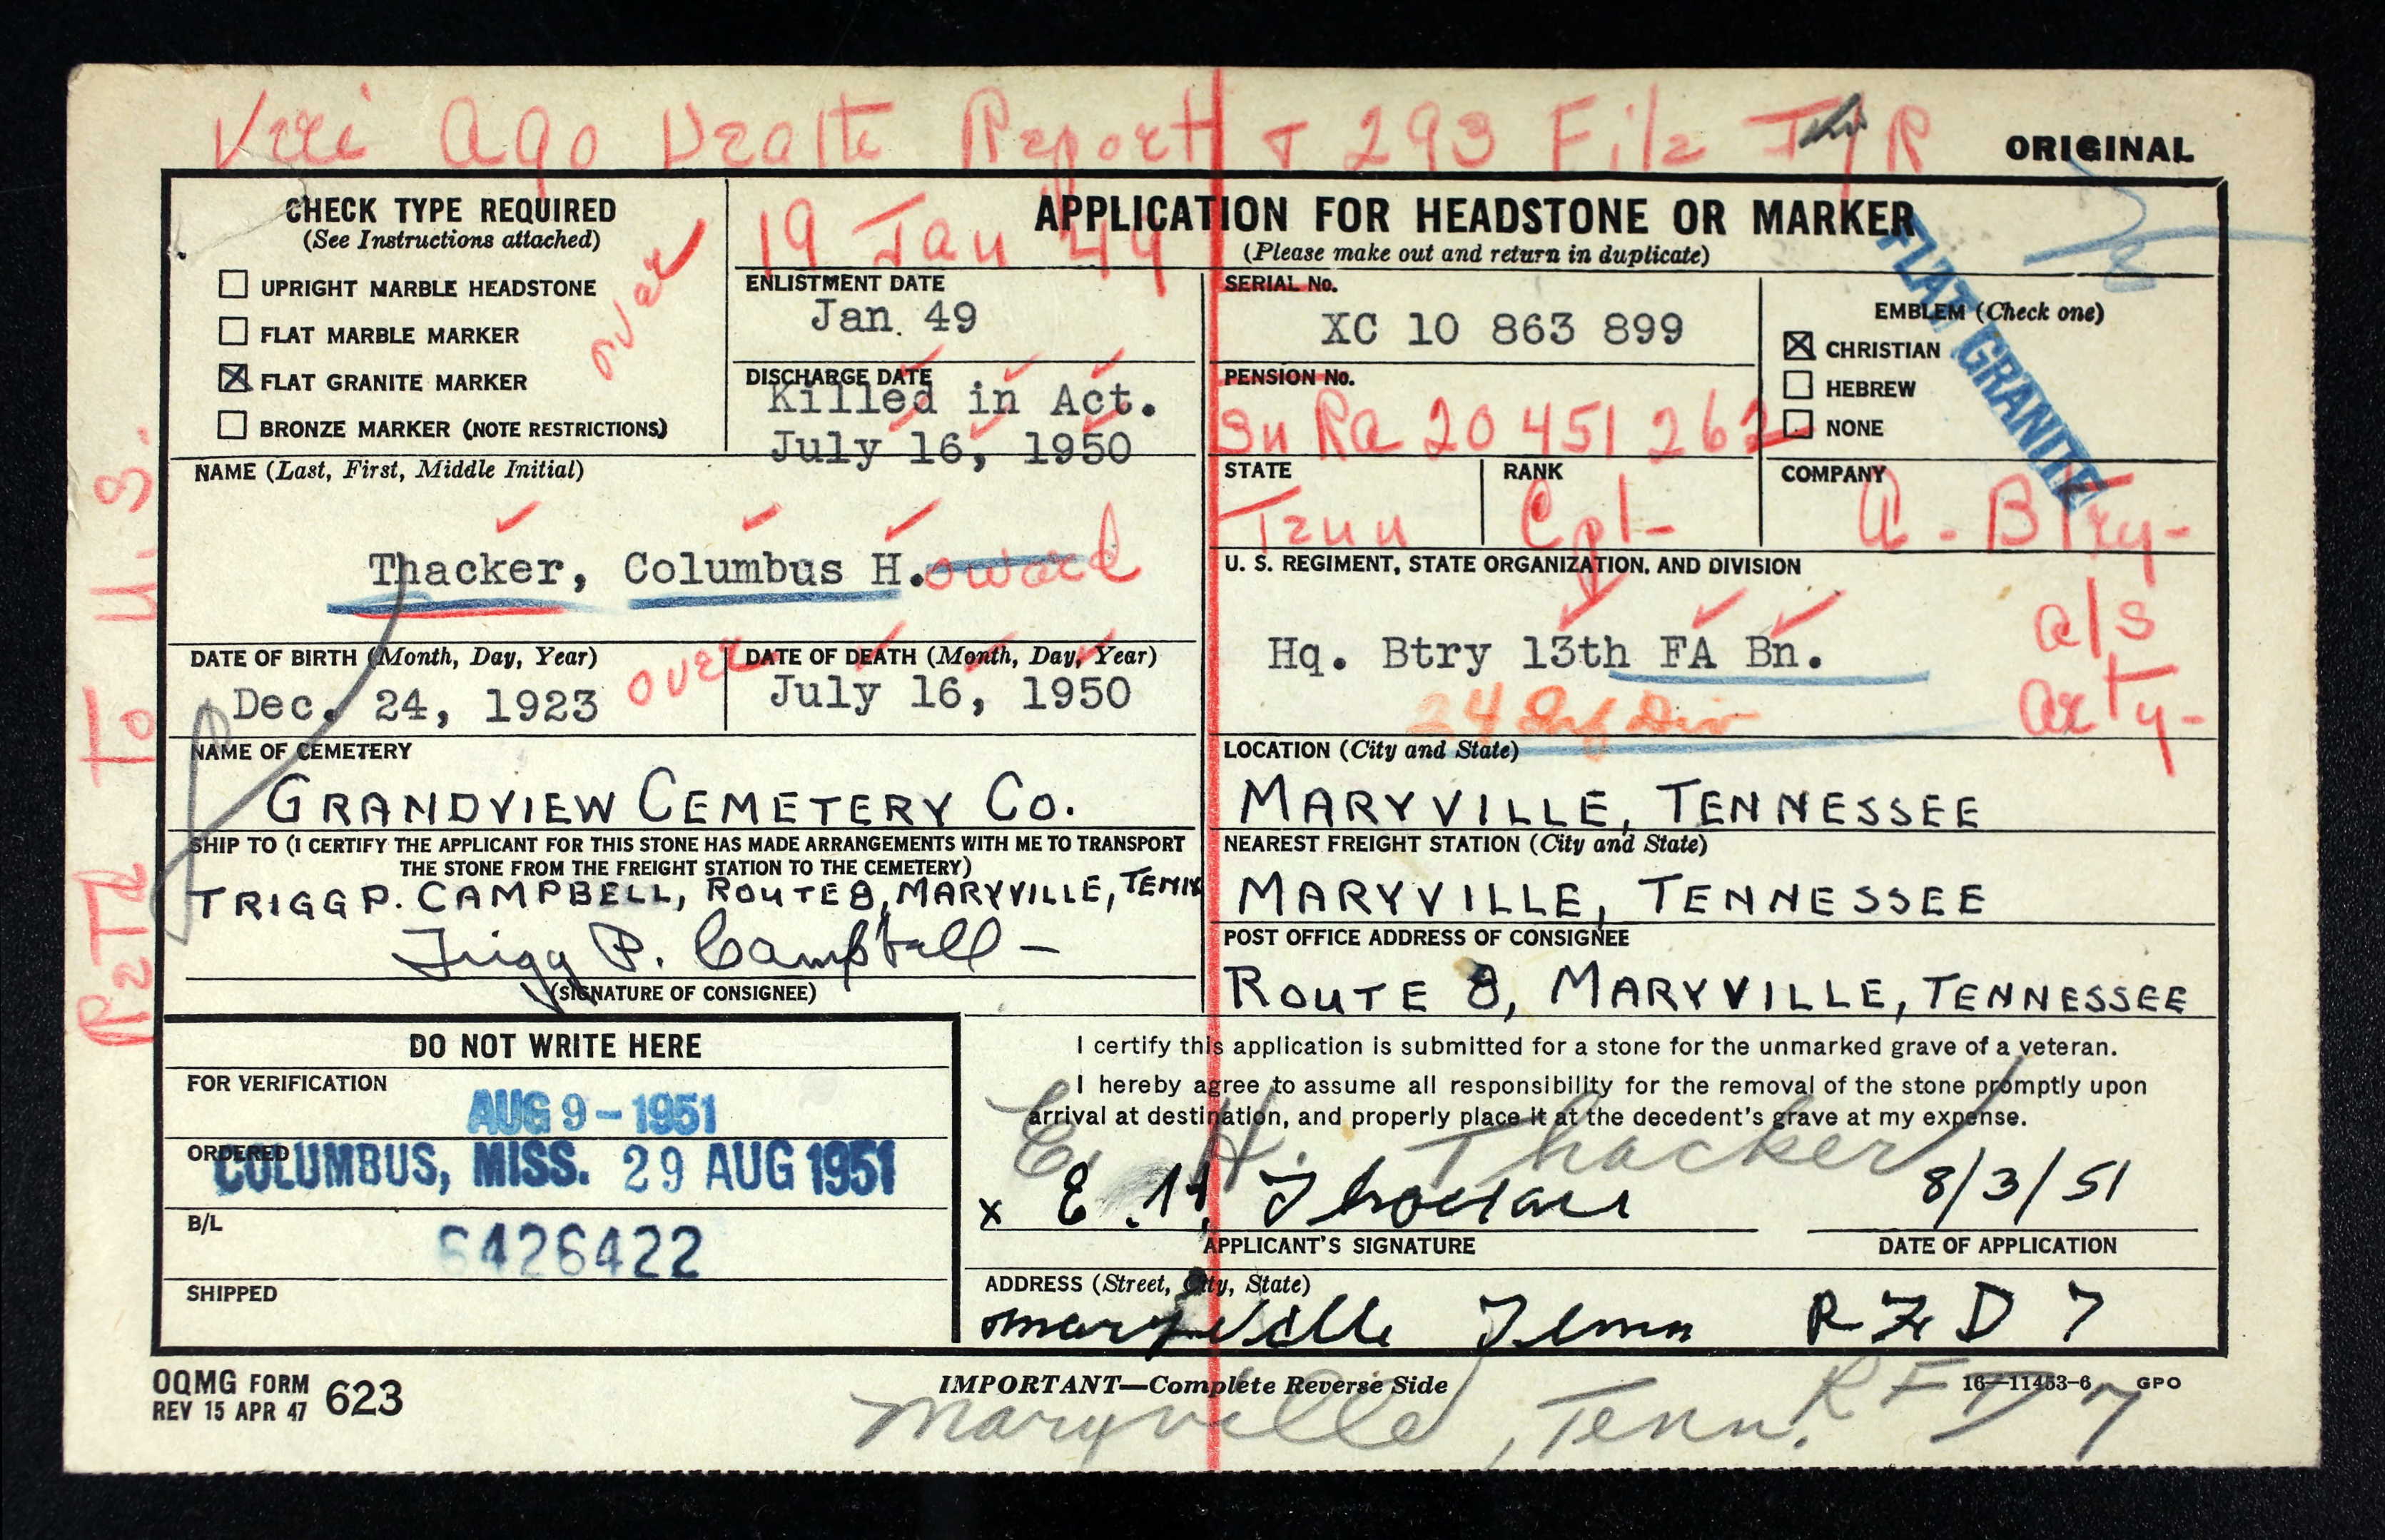 Veri Ago Death Report + 293 File
ORIGINAL
CHECK TYPE REQUIRED
(See Instructions attached)
UPRIGHT MARBLE HEADSTONE
FLAT MARBLE MARKER
FLAT GRANITE MARKER
BRONZE MARKER (NOTE RESTRICTIONS)
over
19 Jan 49
APPLICATION FOR HEADSTONE OR MARKER
(Please make out and return in duplicate)
ENLISTMENT DATE
Jan. 49
SERIAL No.
XC 10 863 899
EMBLEM (Check one)
CHRISTIAN
HEBREW
NONE
FLAT GRANITE
DISCHARGE DATE
Killed in Act.
July 16, 1950
PENSION No.
Sn Ra 20 451 262
NAME (Last, First, Middle Initial)
Thacker, Columbus H.oward
STATE
Tenn
RANK
Cpl-
COMPANY
A - Btry-
U. S. REGIMENT, STATE ORGANIZATION, AND DIVISION
Hq. Btry 13th FA Bn.
24 Inf Div
a/s
arty-
DATE OF BIRTH (Month, Day, Year)
Dec. 24, 1923
over
DATE OF DEATH (Month, Day, Year)
July 16, 1950
NAME OF CEMETERY
GRANDVIEW CEMETERY CO.
LOCATION (City and State)
MARYVILLE, TENNESSEE
SHIP TO (I CERTIFY THE APPLICANT FOR THIS STONE HAS MADE ARRANGEMENTS WITH ME TO TRANSPORT
THE STONE FROM THE FREIGHT STATION TO THE CEMETERY)
TRIGG P. CAMPBELL, ROUTE 8, MARYVILLE, TENN
Trigg P. Campbell -
(SIGNATURE OF CONSIGNEE)
NEAREST FREIGHT STATION (City and State)
MARYVILLE, TENNESSEE
POST OFFICE ADDRESS OF CONSIGNEE
ROUTE 8, MARYVILLE, TENNESSEE
Retd To U.S.
DO NOT WRITE HERE
FOR VERIFICATION
AUG 9 - 1951
ORDERED
COLUMBUS, MISS. 29 AUG 1951
B/L
6426422
SHIPPED
I certify this application is submitted for a stone for the unmarked grave of a veteran.
I hereby agree to assume all responsibility for the removal of the stone promptly upon
arrival at destination, and properly place it at the decedent's grave at my expense.
E. H. Thacker
x E. H. Thacker
8/3/51
APPLICANT'S SIGNATURE
DATE OF APPLICATION
ADDRESS (Street, City, State)
maryville Tenn R F D 7
OQMG FORM 623
REV 15 APR 47
IMPORTANT—Complete Reverse Side
16—11453-6 GPO
Maryville, Tenn. R F D 7